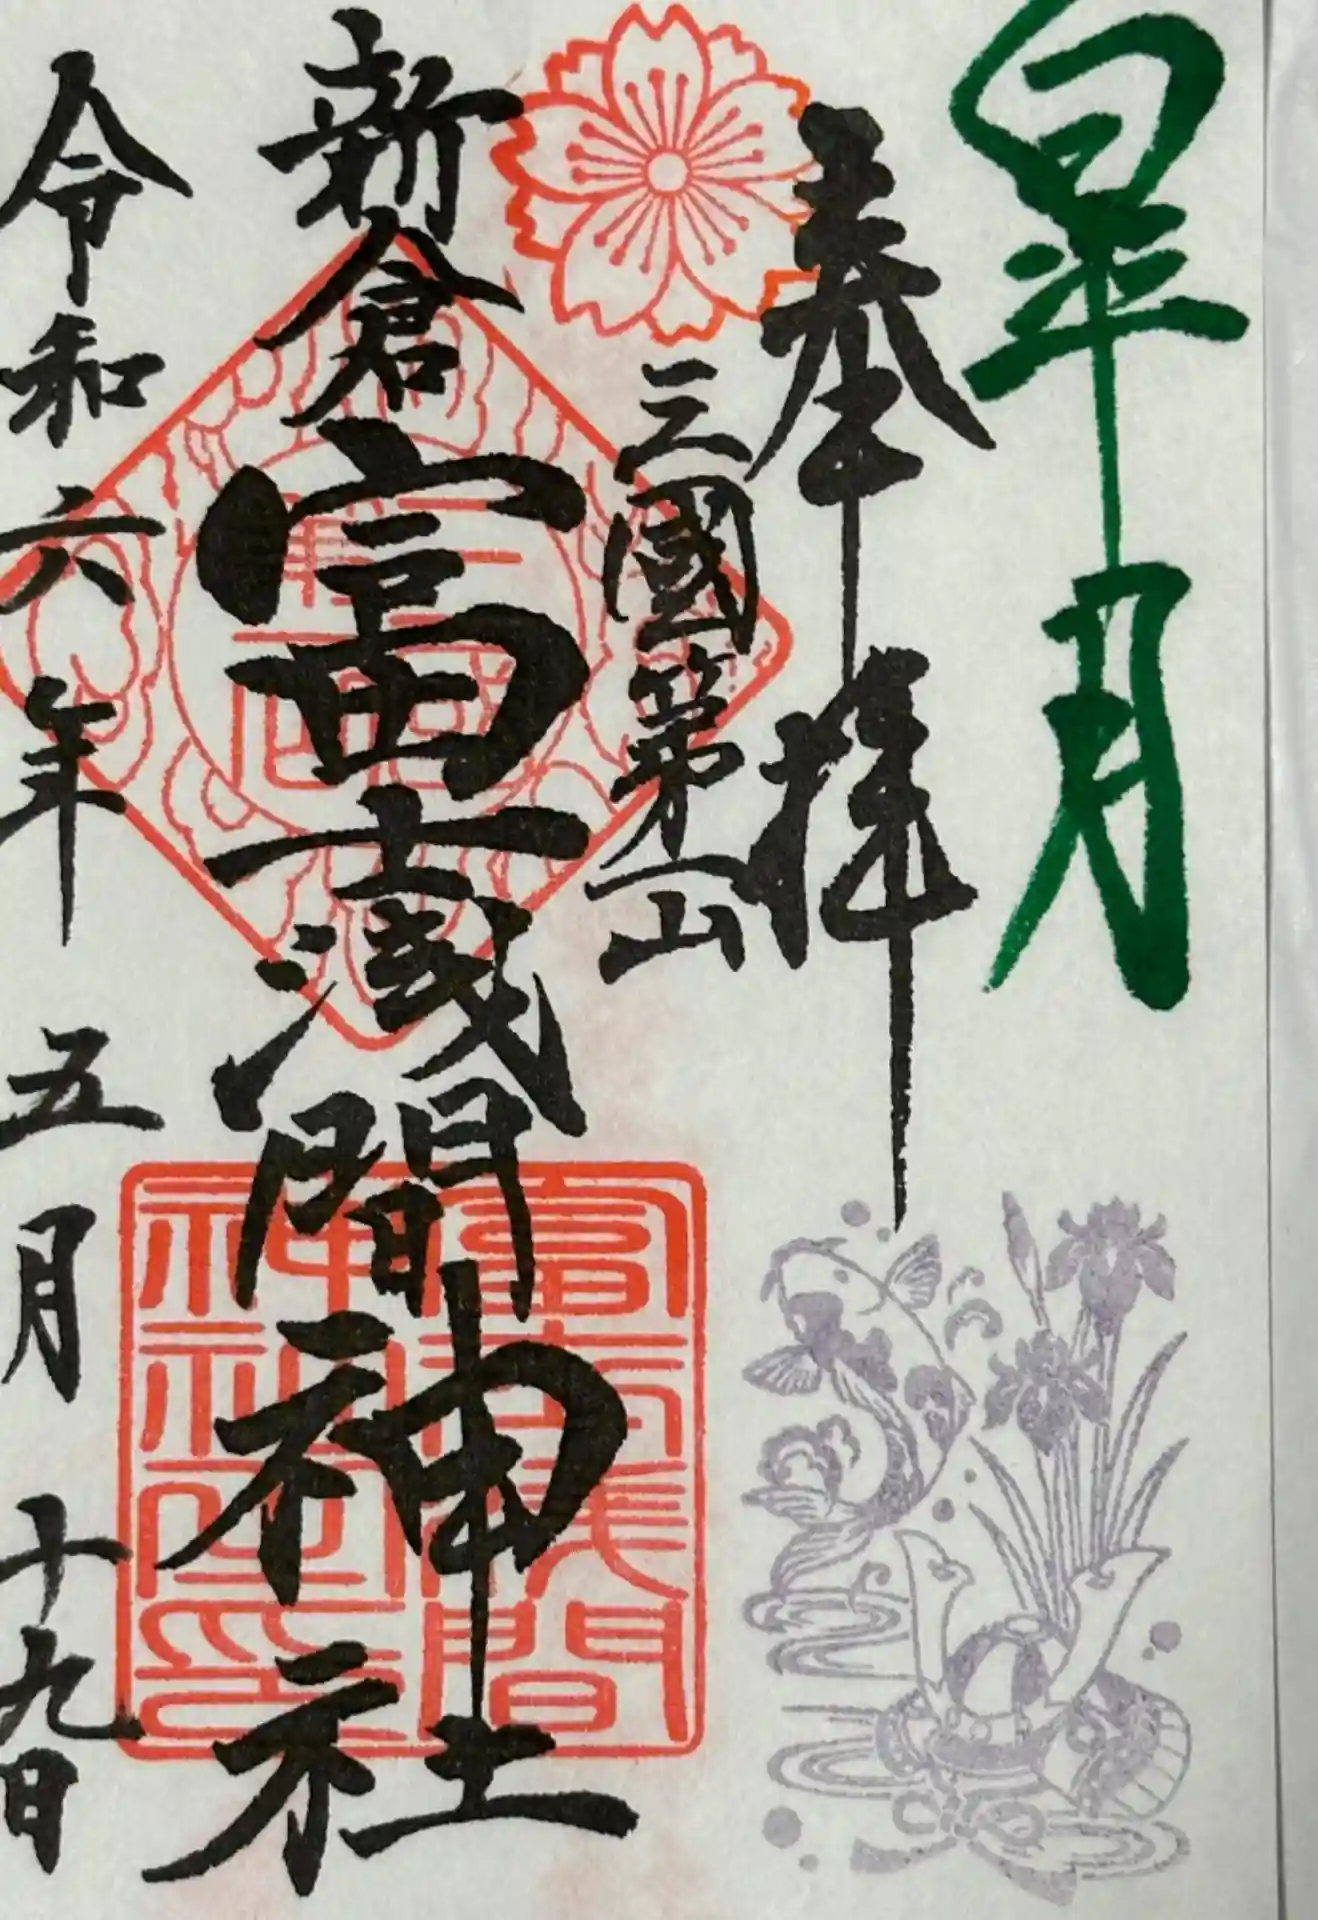 皐月
奉拝
三國第一山
新倉富士浅間神社
富士浅間
神社之印
令和六年五月十九日